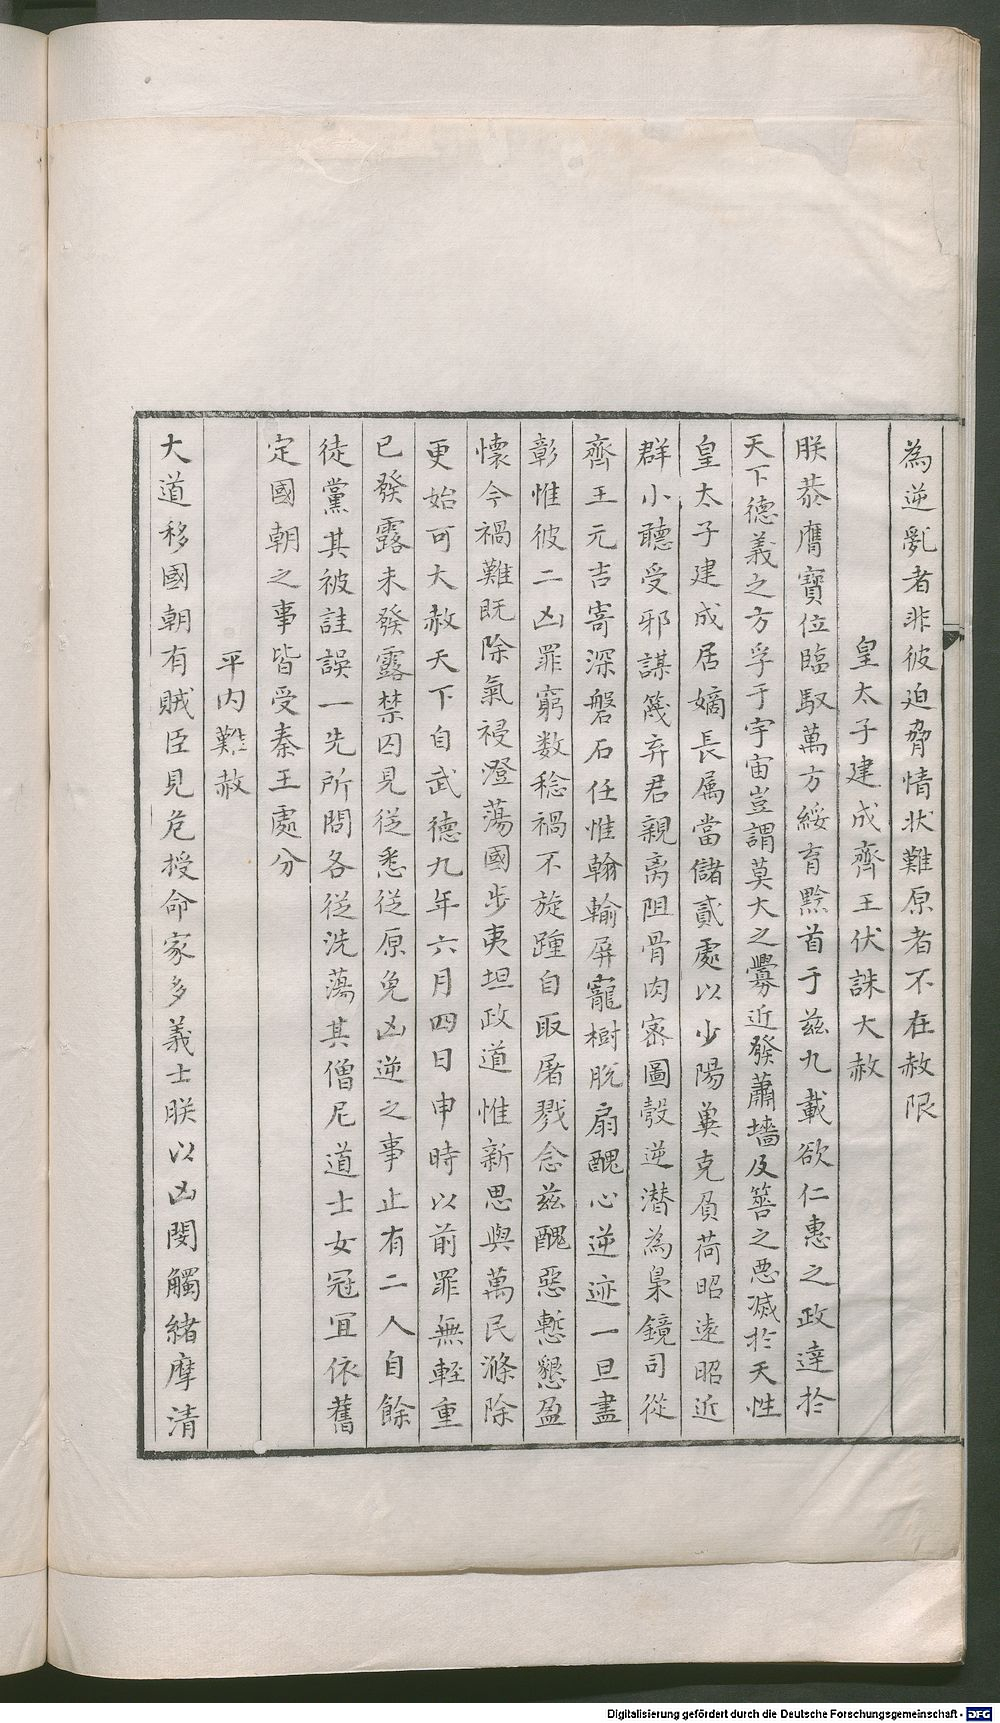 為逆亂者非彼迫脅情狀難原者不在赦限
皇太子建成齊王伏誅大赦
朕恭膺寶位臨馭萬方綏育黔首于兹九載欲仁惠之政達於
天下德義之方孚于宇宙豈謂莫大之釁近發蕭墻及簪之惡滅於天性
皇太子建成居嫡長属當儲貳處以少陽兾克負荷昭遠昭近
群小聽受邪謀篾弃君親离阻骨肉宻圖㱿逆潜為梟鏡司從
齊王元吉寄深磐石任惟翰輸屏寵樹脫扇醜心逆迹一旦盡
彰惟彼二凶罪窮数稔禍不旋踵自取屠戮念兹醜惡慙懇盈
懷今禍難既除氣祲澄蕩國步夷坦政道惟新思與萬民滌除
更始可大赦天下自武德九年六月四日申時以前罪無輕重
已發露未發露禁囚見從悉從原免凶逆之事止有二人自餘
徒黨其被詿誤一先所問各從洗蕩其僧尼道士女冠宜依舊
定國朝之事皆受秦王處分
平内難赦
大道移國朝有賊臣見危授命家多義士朕以凶閔觸緒摩清
Digitalisierung gefördert durch die Deutsche Forschungsgemeinschaft - DFG